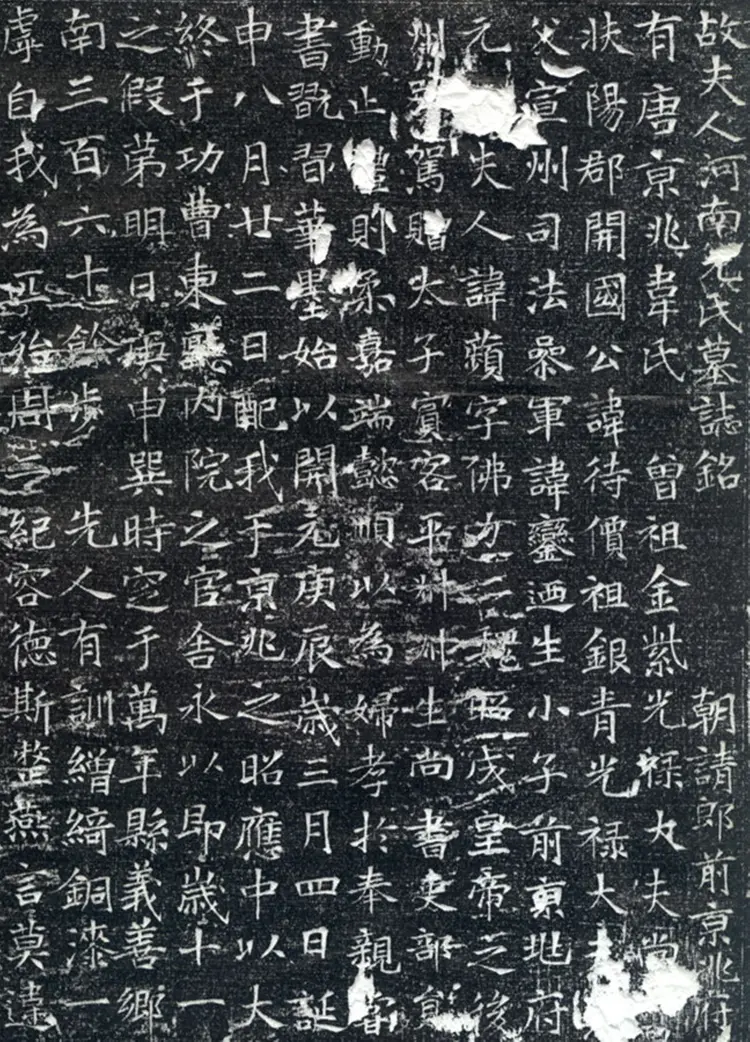 故夫人河南元氏墓誌銘 朝請郎前京兆府
有唐京兆韋氏 曾祖金紫光祿大夫尚
扶陽郡開國公諱待價祖銀青光祿大
父宣州司法叅軍諱鑾迺生小子前京兆府
元 夫人諱蘋字佛力 昭成皇帝之後
州別駕贈太子賓客平叔叔生尚書吏部員
動止禮則柔嘉端懿順以為婦孝於奉親嘗
書翫習華墨始以開元庚辰歲三月四日誕
申八月廿二日配我于京兆之昭應中以大
終于功曹東廳內院之官舍永以即歲十一
之假苐明日庚申巽時窆于萬年縣義善鄉
南三百六十餘步 先人有訓繒綺銅漆一
虛自我為匹殆周二紀容德斯整燕言莫違